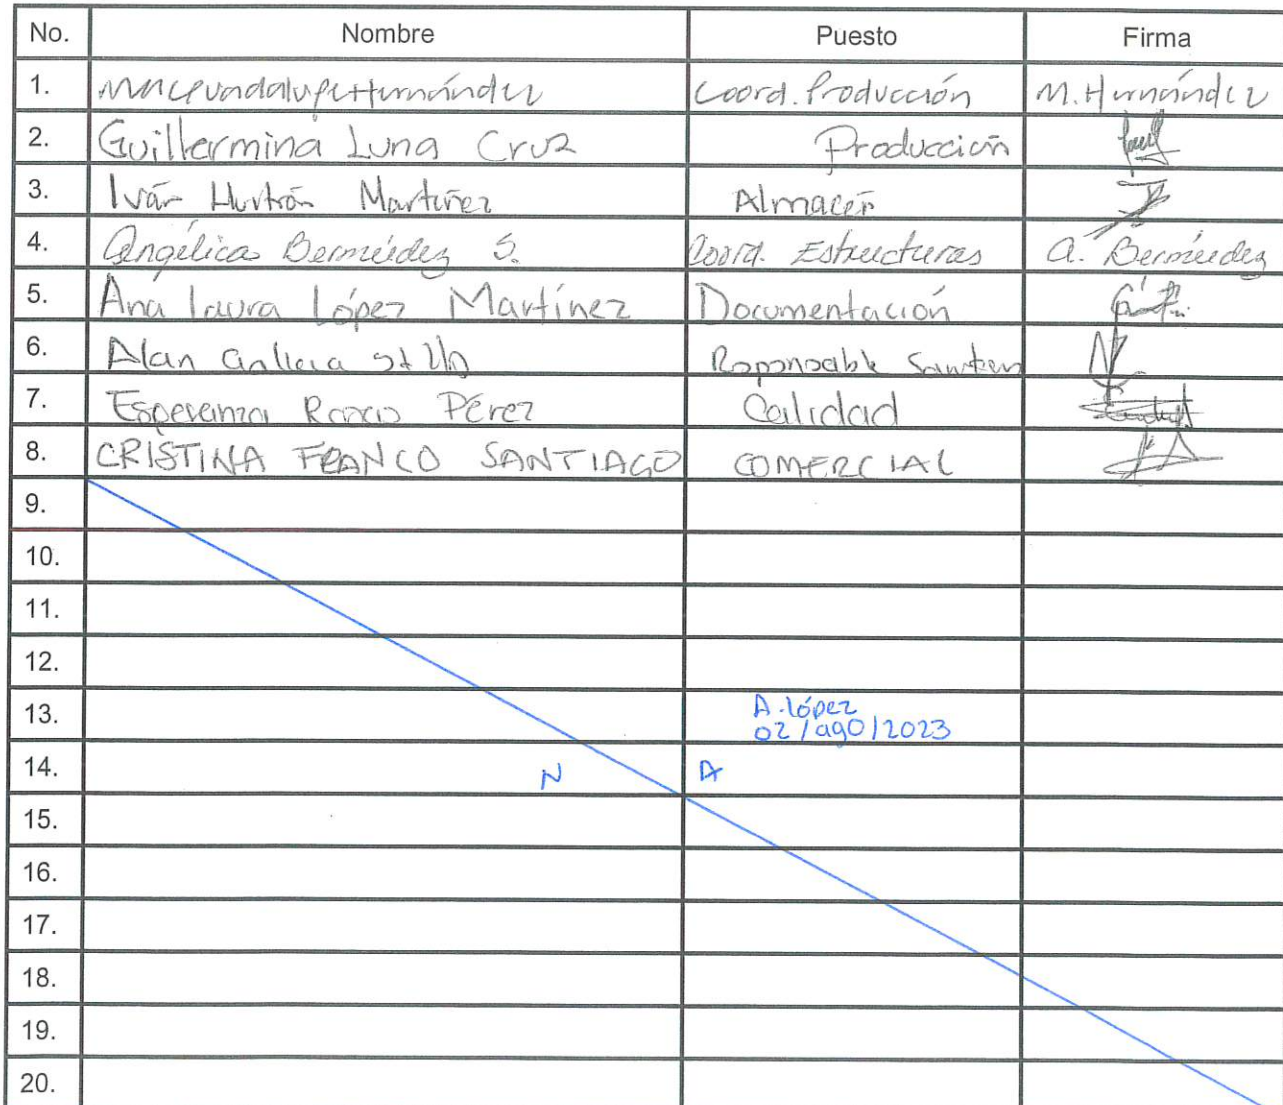 No. Nombre Puesto Firma
1. Ma Guadalupe Hernández Coord. Producción M. Hernández
2. Guillermina Luna Cruz Producción
3. Iván Martínez Almacén
4. Angélica Bermúdez S. Coord. Estructuras A. Bermúdez
5. Ana laura López Martínez Documentación
6. Alan
7. Esperanza Pérez Calidad
8. CRISTINA FRANCO SANTIAGO COMERCIAL
9.
10.
11.
12.
13. A. López
02/ago/2023
14. N A
15.
16.
17.
18.
19.
20.